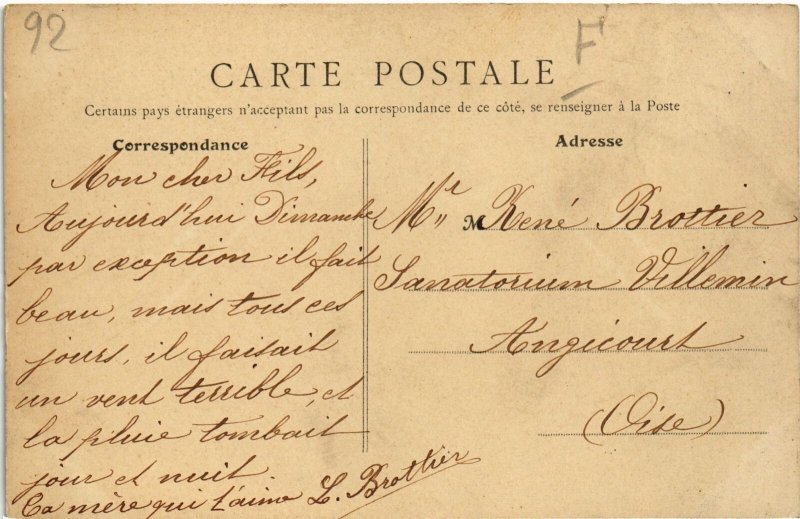 92
F
CARTE POSTALE
Certains pays étrangers n'acceptant pas la correspondance de ce côté, se renseigner à la Poste
Correspondance
Mon cher Fils,
Aujourd'hui Dimanche
par exception il fait
beau, mais tous ces
jours, il faisait
un vent terrible, et
la pluie tombait
jour et nuit
Ta mère qui t'aime L. Brottier
Adresse
Mr M René Brottier
Sanatorium Villemin
Angicourt
(Oise)